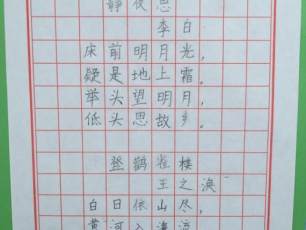 静夜思
李白
床前明月光，
疑是地上霜。
举头望明月，
低头思故乡。
登鹳雀楼
王之涣
白日依山尽，
黄河入海流